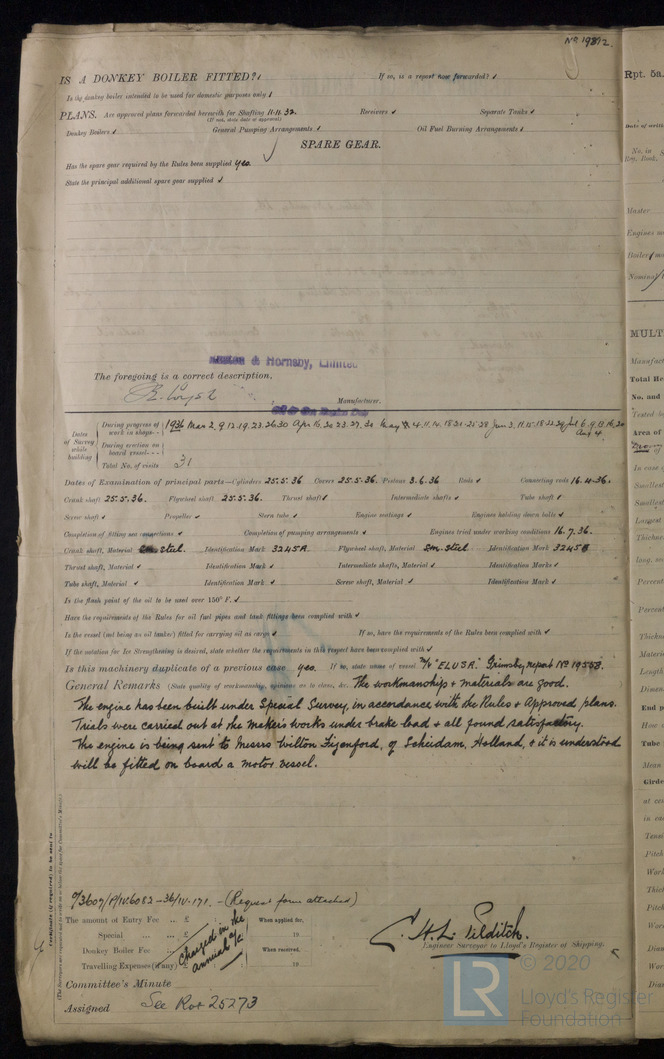 Nº 19812.
IS A DONKEY BOILER FITTED? ✓ If so, is a report now forwarded? ✓
Is the donkey boiler intended to be used for domestic purposes only ✓
PLANS. Are approved plans forwarded herewith for Shafting 11.11.32. Receivers ✓ Separate Tanks ✓
(If not, state date of approval)
Donkey Boilers ✓ General Pumping Arrangements ✓ Oil Fuel Burning Arrangements ✓
SPARE GEAR.
Has the spare gear required by the Rules been supplied yes.
State the principal additional spare gear supplied ✓
& Hornsby, Limited
The foregoing is a correct description,
Manufacturer.
Dates of Survey while building
During progress of work in shops - - 1936 Mar 2. 9. 12. 19. 23. 26. 30 Apr 16. 20. 23. 27. 30 May 4. 11. 14. 18. 21. 25. 28 Jun 3. 11. 15. 18. 22. 29 Jul 6. 9. 13. 16. 20
Aug 4.
During erection on board vessel - - -
Total No. of visits 31
Dates of Examination of principal parts—Cylinders 25.5.36 Covers 25.5.36. Pistons 3.6.36 Rods ✓ Connecting rods 16.4.36.
Crank shaft 25.5.36. Flywheel shaft 25.5.36. Thrust shaft ✓ Intermediate shafts ✓ Tube shaft ✓
Screw shaft ✓ Propeller ✓ Stern tube ✓ Engine seatings ✓ Engines holding down bolts ✓
Completion of fitting sea connections ✓ Completion of pumping arrangements ✓ Engines tried under working conditions 16.7.36.
Crank shaft, Material Sm. steel. Identification Mark 3245A Flywheel shaft, Material Sm. steel Identification Mark 3245B
Thrust shaft, Material ✓ Identification Mark ✓ Intermediate shafts, Material ✓ Identification Marks ✓
Tube shaft, Material ✓ Identification Mark ✓ Screw shaft, Material ✓ Identification Mark ✓
Is the flash point of the oil to be used over 150° F. ✓
Have the requirements of the Rules for oil fuel pipes and tank fittings been complied with ✓
Is the vessel (not being an oil tanker) fitted for carrying oil as cargo ✓ If so, have the requirements of the Rules been complied with ✓
If the notation for Ice Strengthening is desired, state whether the requirements in this respect have been complied with ✓
Is this machinery duplicate of a previous case yes. If so, state name of vessel M/V "ELUSA." Grimsby report Nº 19553.
General Remarks (State quality of workmanship, opinions as to class, &c. The workmanship & materials are good.
The engine has been built under Special Survey, in accordance with the Rules & Approved plans.
Trials were carried out at the maker's works under brake load & all found satisfactory.
The engine is being sent to Messrs Wilton Fijenford, of Schiedam, Holland, & it is understood
will be fitted on board a motor vessel.
(Request form attached)
The amount of Entry Fee .. £ When applied for,
Special ... ... £ 19
Donkey Boiler Fee ... £ When received,
Travelling Expenses (if any) £ 19
Charged in the annual a/c
C. H. L. Pilditch.
Engineer Surveyor to Lloyd's Register of Shipping.
Committee's Minute
Assigned See Rot 25273
Certificate (if required) to be sent to
(The Surveyors are requested not to write on or below the space for Committee's Minute.)
Rpt. 5a.
No. in
Reg. Book.
Master
Boiler
Nominal
MULT
Manufact
Total He
No. and
Tested b
Area of
In case o
Smallest
Smallest
Largest
Thickne
long. se
Percent
Percent
Thickne
Materia
Length
Dimen
End p
How s
Tube
Mean
Girde
at ce
in ea
Tens
Pitch
Work
Thick
Pitch
Work
Diam
Work
Diam
Dia
LR
© 2020
Lloyd's Register
Foundation